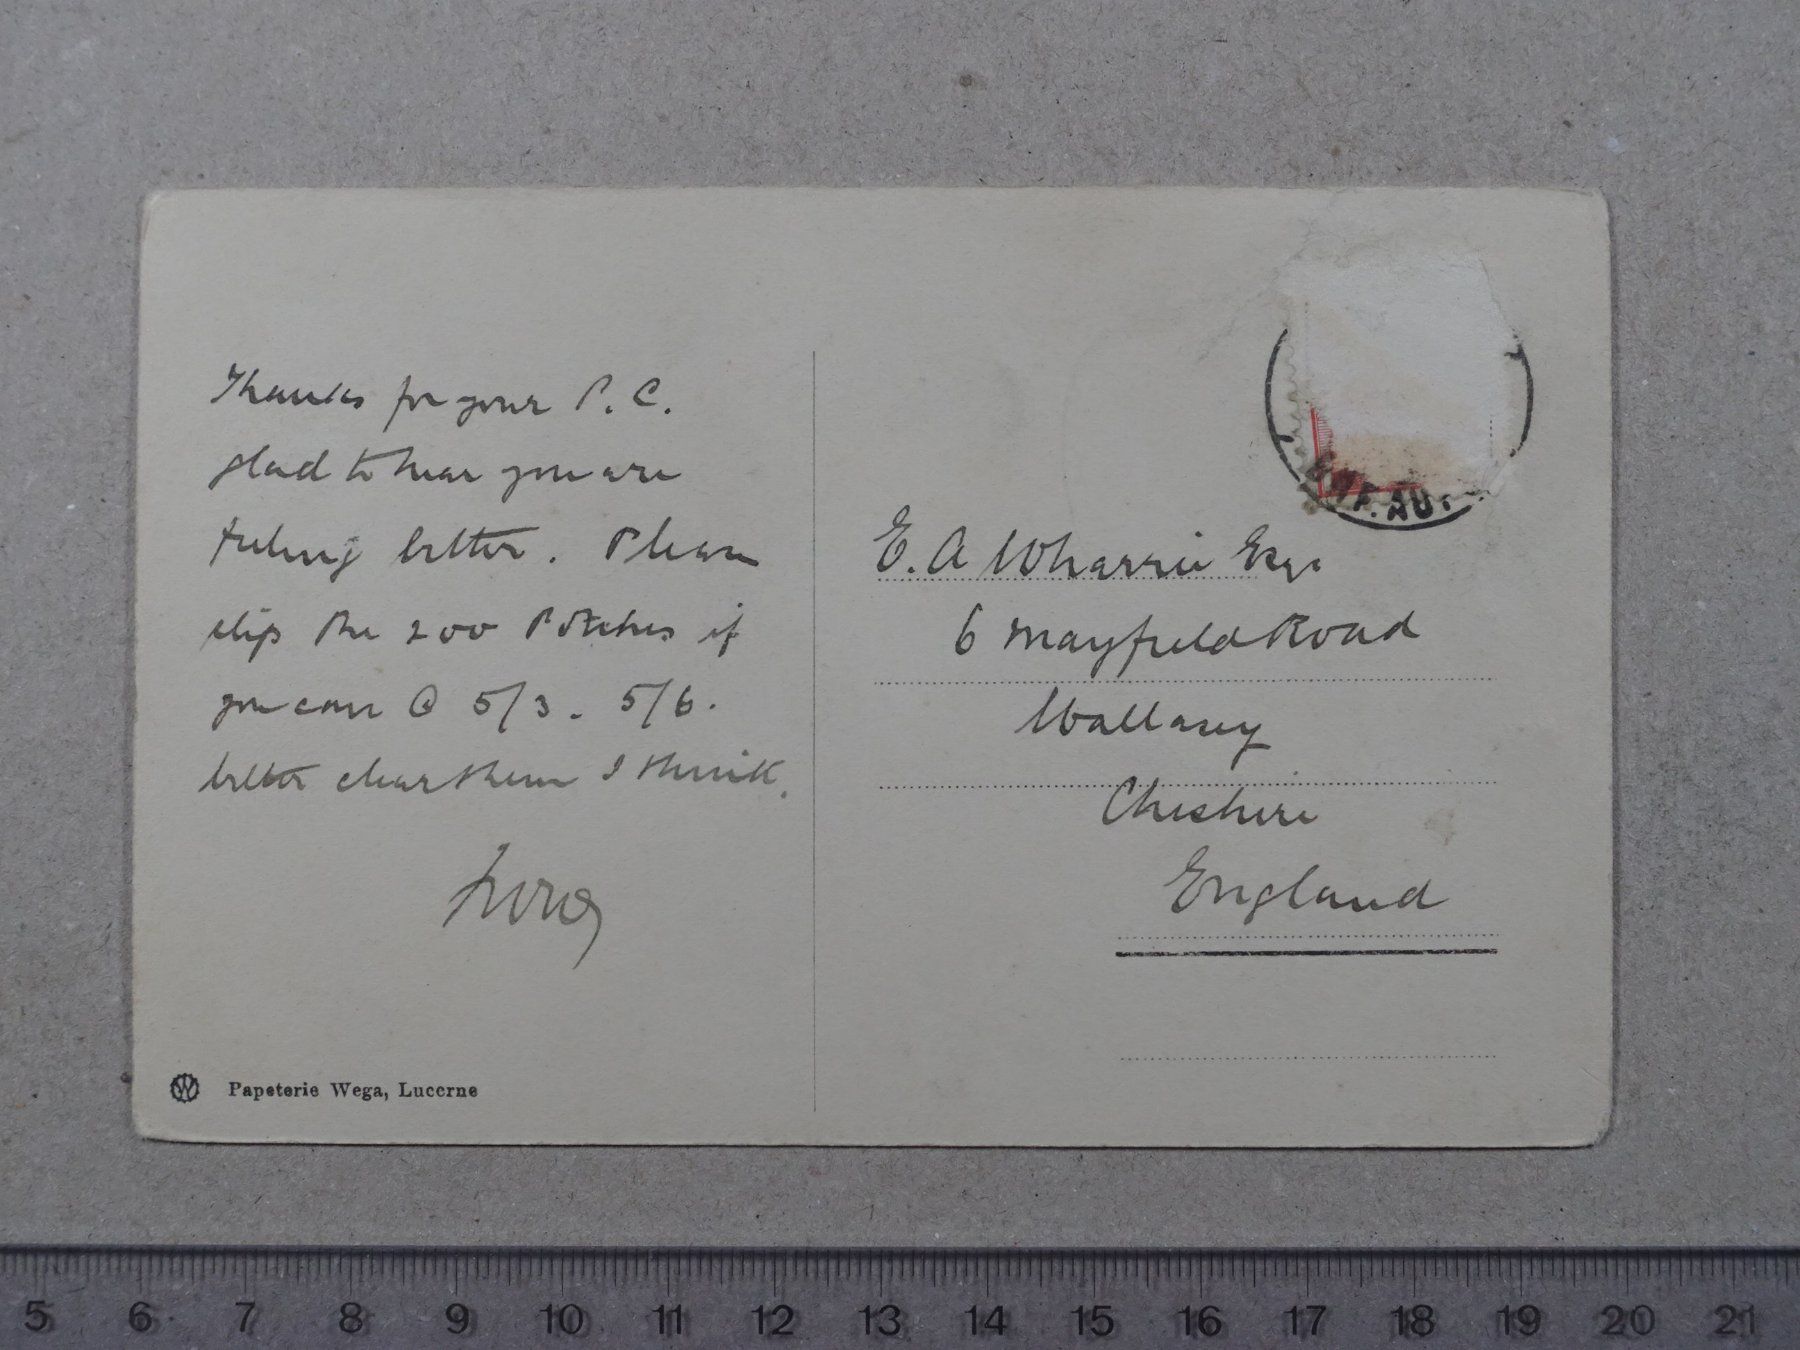 Thanks for your P.C.
glad to hear you are
feeling better. Please
slip the 200 if
you can @ 5/3. 5/6.
better clear them I think.
E. A Wharrie Esq.
6 Mayfield Road
Wallasey
Cheshire
England
W Papeterie Wega, Lucerne
5 6 7 8 9 10 11 12 13 14 15 16 17 18 19 20 21